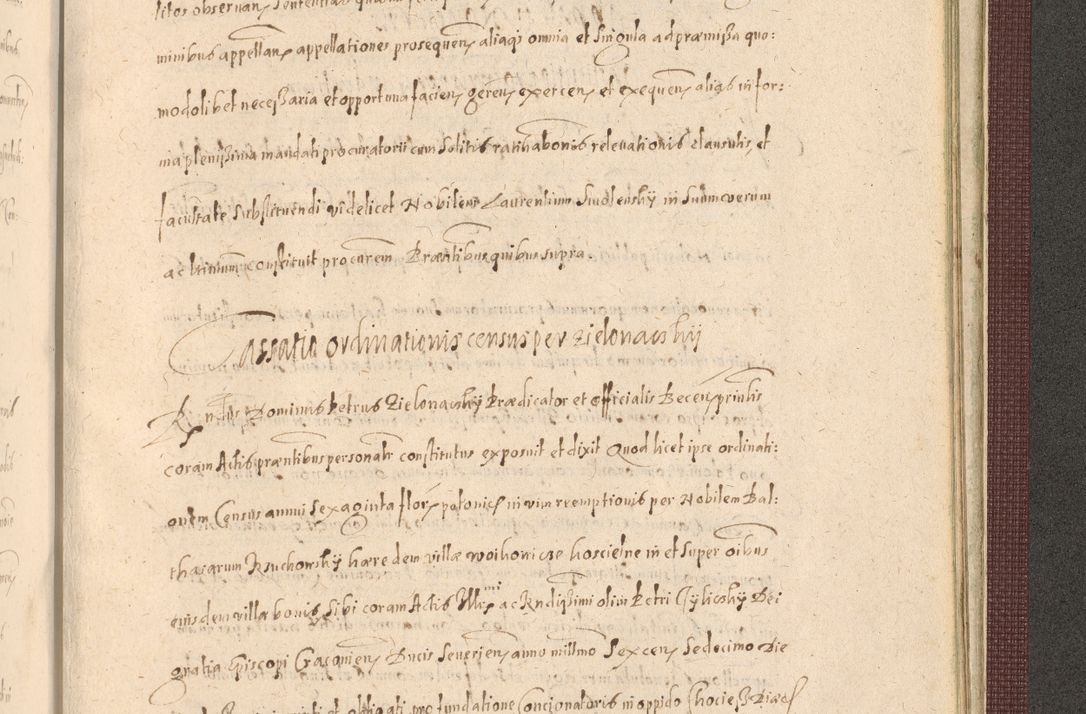 litos observan, sententias
minibus appellan, appellationes prosequen, aliaqs omnia et singula ad præmißa quo:
modolibet neceßaria et opportuna facien, geren, exercen, et exequen, aliqs in for:
ma plenißima mandati procuratorii cum solitis ratihabonis relevationis clausulis, et
facultate substituendi videlicet Nobilem Laurentium Smolensky in suum verum
ac ltimum constituit procurem Præntibus quibus supra
Cassatio ordinationis census per Zielonacskij
Rndus Dominus Petrus Zielonacskÿ Prædicator et officialis Becen, printis
coram Actis præntibus personalr constitutus exposuit et dixit Quod licet ipse ordinati:
onem Census annui sexaginta flor, polonics in vim reemptionis per Nobilem Bal:
thasarum Rsuchowskÿ hæredem villæ in et super oibus
eiusdem villæ bonis, sibi coram Actis Illrs mi ac Rndißimi olim Petri Tÿlicskÿ Dei
gratia Episcopi Cracovien, Ducis Severien, anno millmo Sexcen, Sedecimo Die
et obligati pro fundatione Concionatoris in oppido